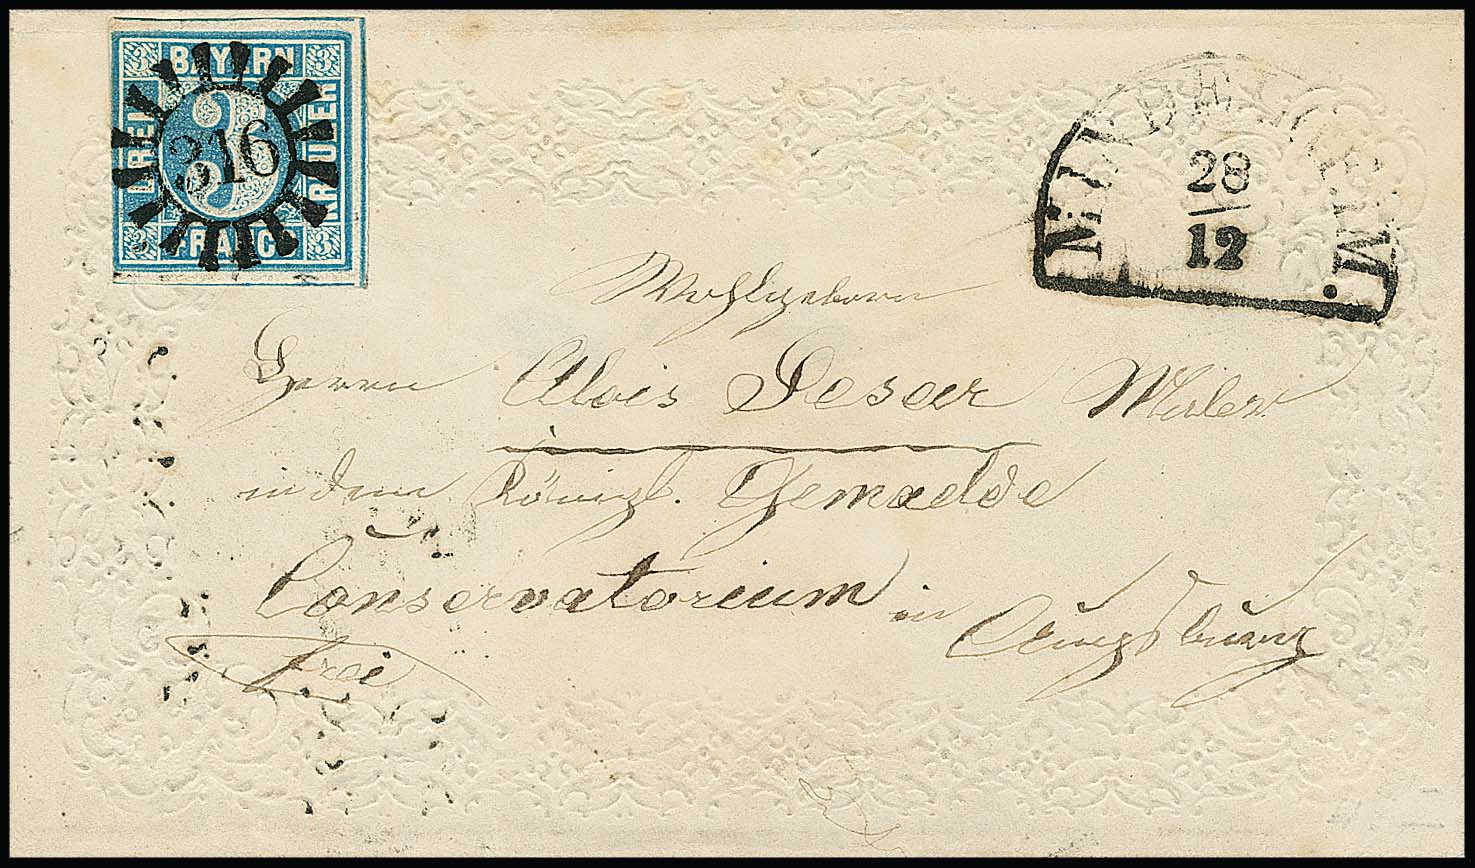 BAYERN
DREI
KREUZER
FRANCO
3 3 3 3
3
316
MINDELHEIM.
28
12
Wohlgeborn
Herrn Alois Deser Maler
in dem Königl. Gemaelde
Conservatorium in Augsburg
frei